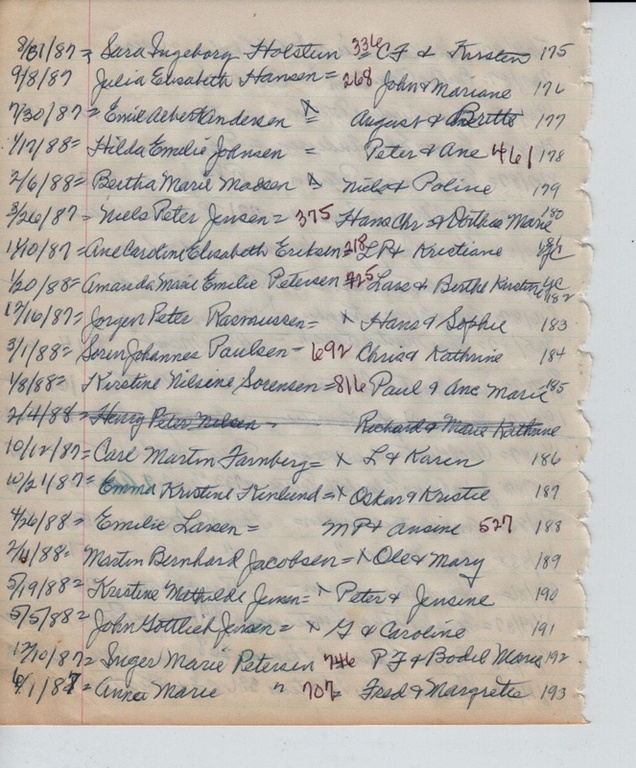 8/31/87 = Sara Ingeborg Holstein 336 = C F & Kirsten 175
9/8/87 Julia Elisabeth Hansen = 268 John & Mariane 176
7/30/87 = Emil Albert Andersen X = August & Berthe 177
1/17/88 = Hilda Emilie Johnsen = Peter & Ane 461 178
2/6/88 = Bertha Marie Madsen X Niels & Poline 179
3/26/87 = Niels Peter Jensen = 375 Hans Chr & Dorthea Marie 180
11/10/87 = Ane Caroline Elisabeth Eriksen = 218 L P & Kristiane 181
1/20/88 = Amanda Marie Emilie Petersen = 725 Lars & Berthe Kirstine 182
12/16/87 = Jorgen Peter Rasmussen = X Hans & Sophie 183
3/1/88 = Soren Johannes Paulsen - 692 Chris & Kathrine 184
1/8/88 = Kirstine Nilsine Sorensen = 816 Paul & Ane Marie 185
2/4/88 = Henry Peter Nelsen - Richard & Marie Kathrine
10/12/87 = Carl Martin Farnberg = X L & Karen 186
10/21/87 = Emma Kristine Kinlund = X Oskar & Kristie 187
4/26/88 = Emilie Larsen = M P & Ansine 527 188
2/4/88 - Martin Bernhard Jacobsen = X Ole & Mary 189
5/19/88 = Kerstine Mathilde Jensen = X Peter & Jensine 190
5/5/88 = John Gottlieb Jensen = X G & Caroline 191
12/10/87 = Inger Marie Petersen 746 P F & Bodel Marie 192
6/1/87 = Anna Marie " 707 = Fred & Margrete 193